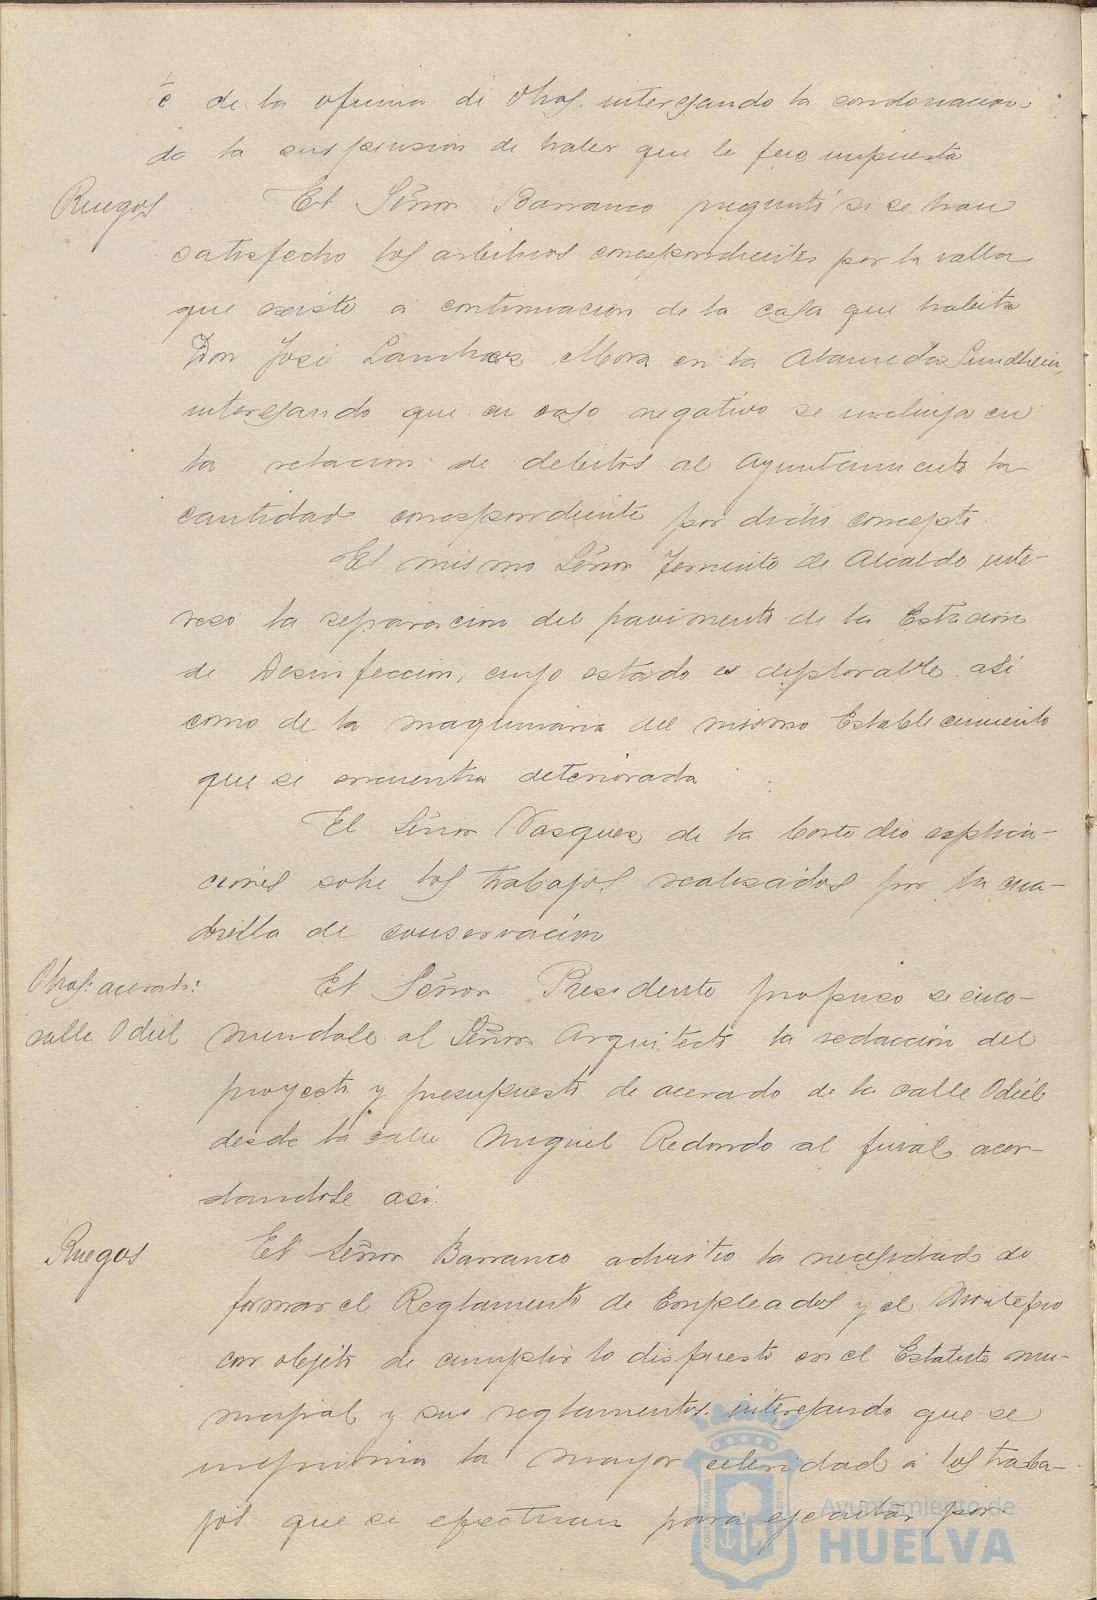 de la oficina de Obras interesando la condonacion
de la suspension de haber que le fue impuesta
Ruegos
El Señor Barranco preguntó si se han
satisfecho los arbitrios correspondientes por la valla
que existe a continuacion de la casa que habita
Don José Sanchez Mora en la Alameda Sundheim,
interesando que en caso negativo se incluya en
la relacion de debitos al Ayuntamiento la
cantidad correspondiente por dicho concepto.
El mismo Señor Teniente de Alcalde inte-
reso la reparacion del pavimento de la Estacion
de Desinfeccion, cuyo estado es deplorable asi
como de la maquinaria del mismo Establecimiento
que se encuentra deteriorada
El Señor Vasquez de la Corte dio explica-
ciones sobre los trabajos realizados por la cua-
drilla de conservacion
Obras acerado:
calle Odiel
El Señor Presidente propuso se enco-
mendase al Señor Arquitecto la redacción del
proyecto y presupuesto de acerado de la calle Odiel
desde la calle Miguel Redondo al final, acor-
dandose asi.
Ruegos
El Señor Barranco advirtio la necesidad de
formar el Reglamento de Empleados y el Montepio
con objeto de cumplir lo dispuesto en el Estatuto mu-
nicipal y sus reglamentos, interesando que se
imprima la mayor celeridad a los traba-
jos que se efectuan para ejecutar por
Ayuntamiento de
HUELVA